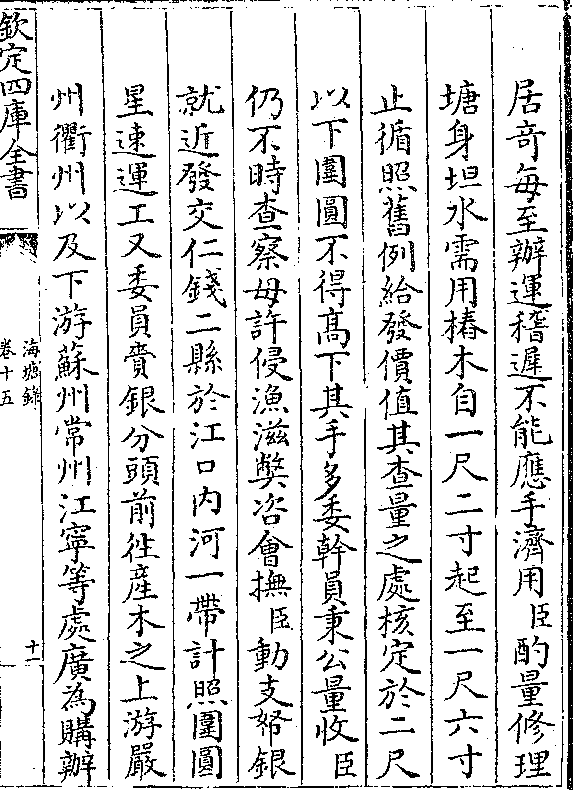 居竒每至辦運稽遲不能應手濟用臣酌量修理
塘身坦水需用樁木自一尺二寸起至一尺六寸
止循照舊例給發價值其查量之處核定於二尺
以下圍圓不得髙下其手多委幹員秉公量收臣
仍不時查察毋許侵漁滋弊咨會撫臣動支帑銀
就近發交仁錢二縣於江口内河一帶計照圍圓
星速運工又委員賫銀分頭前徃產木之上游嚴
州衢州以及下游蘇州常州江寧等處廣為購辦
欽定四庫全書
海塘錄
卷十五
十一